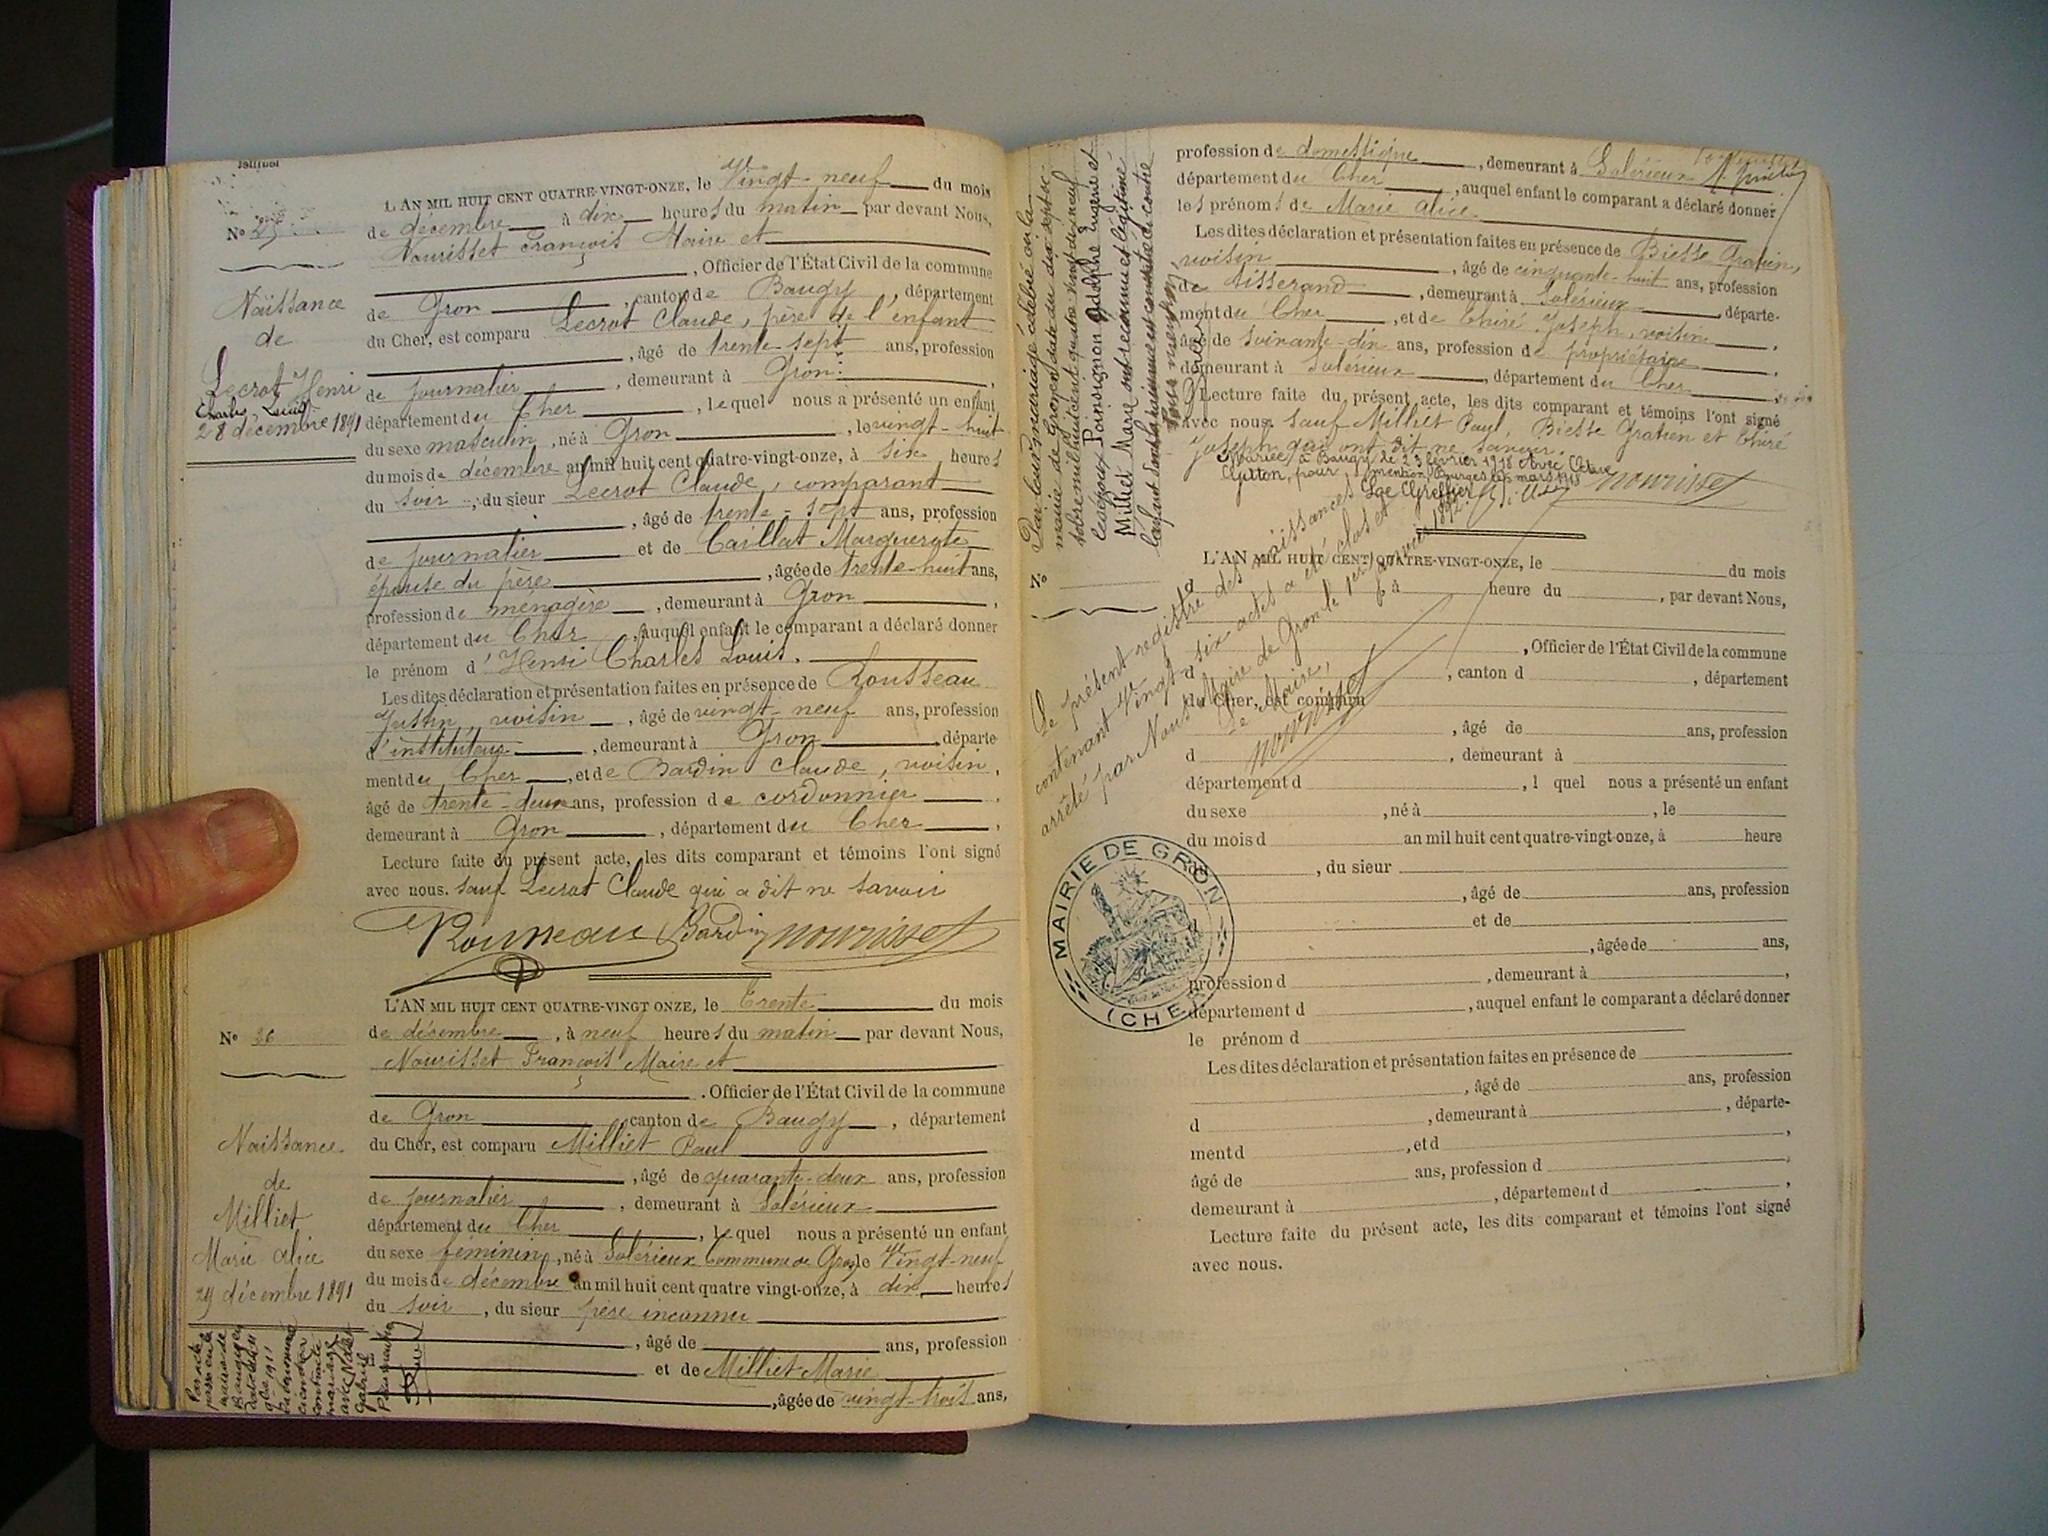 L'AN MIL HUIT CENT QUATRE-VINGT-ONZE, le Vingt-neuf du mois
de décembre à dix heures du matin par devant Nous,
Nourisset François Maire et
, Officier de l'État Civil de la commune
de Gron, canton de Baugy, département
du Cher, est comparu Lecrot Claude, père de l'enfant
, âgé de trente sept ans, profession
de journalier, demeurant à Gron
département du Cher, lequel nous a présenté un enfant
du sexe masculin, né à Gron, le vingt-huit
du mois de décembre an mil huit cent quatre-vingt-onze, à six heures
du soir, du sieur Lecrot Claude, comparant
, âgé de trente-sept ans, profession
de journalier et de Caillat Marguerite
épouse du père, âgée de trente-huit ans,
profession de ménagère, demeurant à Gron,
département du Cher, auquel enfant le comparant a déclaré donner
le prénom d'Henri Charles Louis.
Les dites déclaration et présentation faites en présence de Rousseau
Justin, voisin, âgé de vingt-neuf ans, profession
d'instituteur, demeurant à Gron, départe-
ment du Cher, et de Bardin Claude, voisin,
âgé de trente-deux ans, profession de cordonnier,
demeurant à Gron, département du Cher,
Lecture faite du présent acte, les dits comparant et témoins l'ont signé
avec nous. sauf Lecrot Claude qui a dit ne savoir
Rousseau Bardin Nourisset
No 25
Naissance
de
Lecrot Henri
Charles Louis
28 décembre 1891
L'AN MIL HUIT CENT QUATRE-VINGT ONZE, le Trente du mois
de décembre, à neuf heures du matin par devant Nous,
Nourisset François Maire et
. Officier de l'État Civil de la commune
de Gron canton de Baugy, département
du Cher, est comparu Milliet Paul
, âgé de quarante-deux ans, profession
de journalier, demeurant à Solérieux
département du Cher, lequel nous a présenté un enfant
du sexe féminin, né à Solérieux Commune de Gron, le Vingt-neuf
du mois de décembre an mil huit cent quatre vingt-onze, à dix heures
du soir, du sieur père inconnu
, âgé de ans, profession
et de Milliet Marie
, âgée de vingt-trois ans,
No 26
Naissance
de
Milliet
Marie Alice
29 décembre 1891
Par acte
passé en la
mairie de
Baugy en
date du 11
1911
la dénommée
ci-contre a
contracté
mariage
avec
Gabriel
Pour mention
profession de domestique, demeurant à Solérieux
département du Cher, auquel enfant le comparant a déclaré donner
les prénoms de Marie Alice
Les dites déclaration et présentation faites en présence de Biesse Gratien,
voisin, âgé de cinquante-huit ans, profession
de tisserand, demeurant à Solérieux, départe-
ment du Cher, et de Chiré Joseph, voisin,
âgé de soixante-dix ans, profession de propriétaire,
demeurant à Solérieux, département du Cher,
Lecture faite du présent acte, les dits comparant et témoins l'ont signé
avec nous. sauf Milliet Paul, Biesse Gratien et Chiré
Joseph qui ont dit ne savoir.
Mariée à Baugy le 23 février 1918 avec
pour mention Bourges le mars 1918
Le Greffier
Nourisset
Par leur mariage célébré en la
mairie de Gron en date du dix sept oc-
tobre mil huit cent quatre vingt dix neuf
les époux Poinsignon Adolphe Eugène et
Milliet Marie ont reconnu et légitimé
l'enfant dont la naissance est constatée ci-contre
Pour mention,
Le présent registre des naissances
contenant Vingt-six actes a été clos et
arrêté par Nous Maire de Gron le 1er janvier 1892.
Le Maire,
Nourisset
MAIRIE DE GRON
(CHER)
No
L'AN MIL HUIT CENT QUATRE-VINGT-ONZE, le du mois
d à heure du , par devant Nous,
, Officier de l'État Civil de la commune
d , canton d , département
du Cher, est comparu
, âgé de ans, profession
d , demeurant à
département d , l quel nous a présenté un enfant
du sexe , né à , le
du mois d an mil huit cent quatre-vingt-onze, à heure
du , du sieur
, âgé de ans, profession
d et de
, âgée de ans,
profession d , demeurant à ,
département d , auquel enfant le comparant a déclaré donner
le prénom d
Les dites déclaration et présentation faites en présence de
, âgé de ans, profession
d , demeurant à , départe-
ment d , et d ,
âgé de ans, profession d ,
demeurant à , département d ,
Lecture faite du présent acte, les dits comparant et témoins l'ont signé
avec nous.